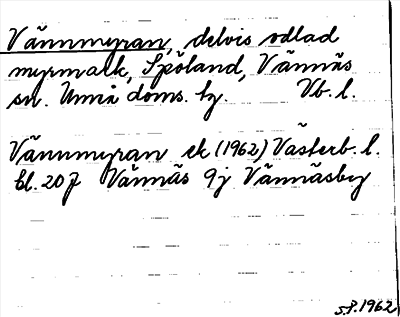 Vännmyran, delvis odlad
myrmark, Spöland, Vännäs
sn. Umeå doms. hg. Vb. l.
Vännmyran ek (1962) Västerb. l.
bl. 20 J Vännäs 9j Vännäsby
S.P. 1962